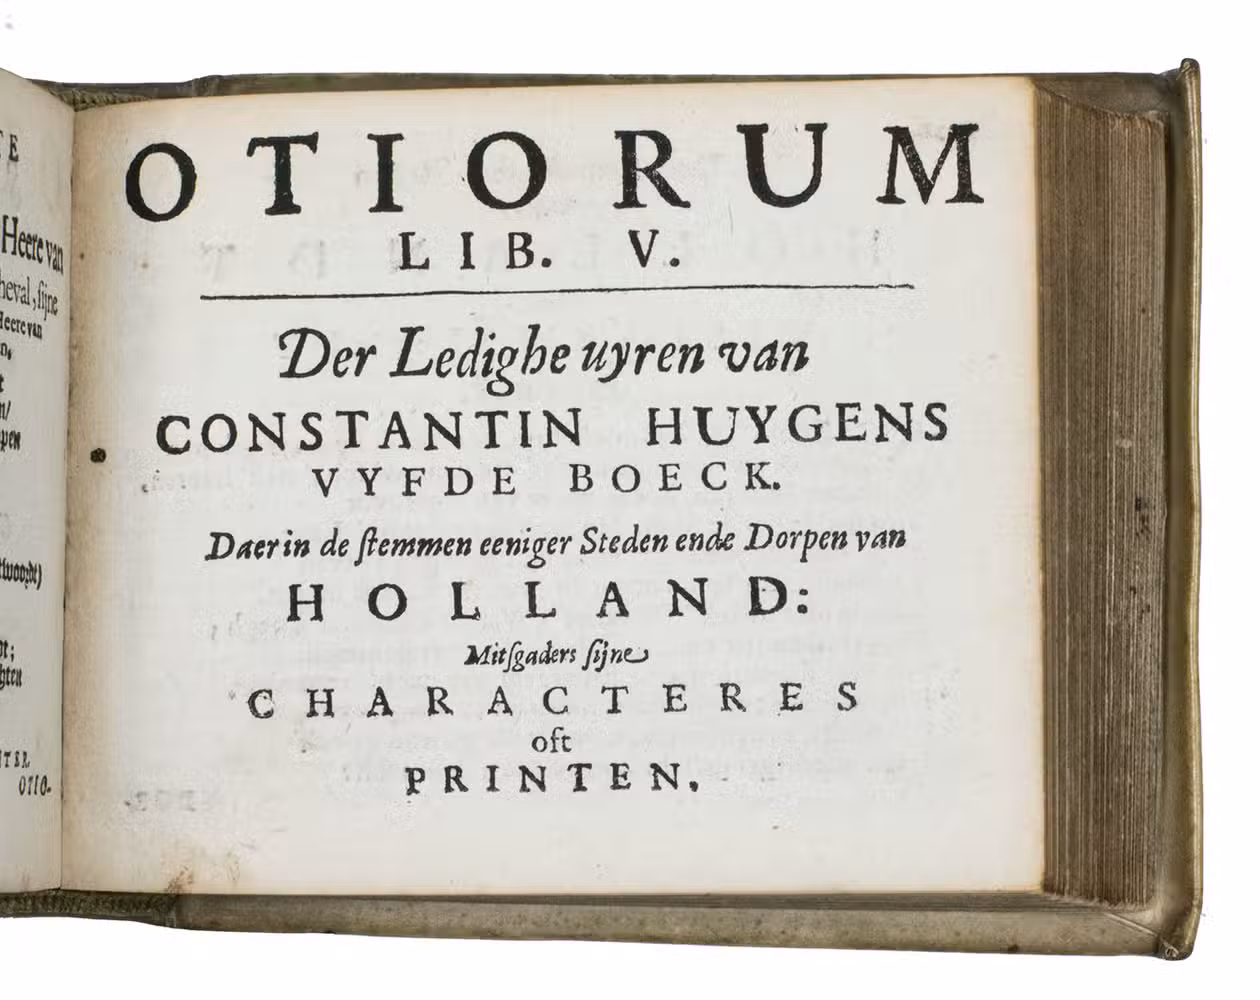 Heere van
heval, ſijne
Heere van
OTIO.
OTIORUM
LIB. V.
Der Ledighe uyren van
CONSTANTIN HUYGENS
VYFDE BOECK.
Daer in de ſtemmen eeniger Steden ende Dorpen van
HOLLAND:
Mitſgaders ſijne
CHARACTERES
oft
PRINTEN.